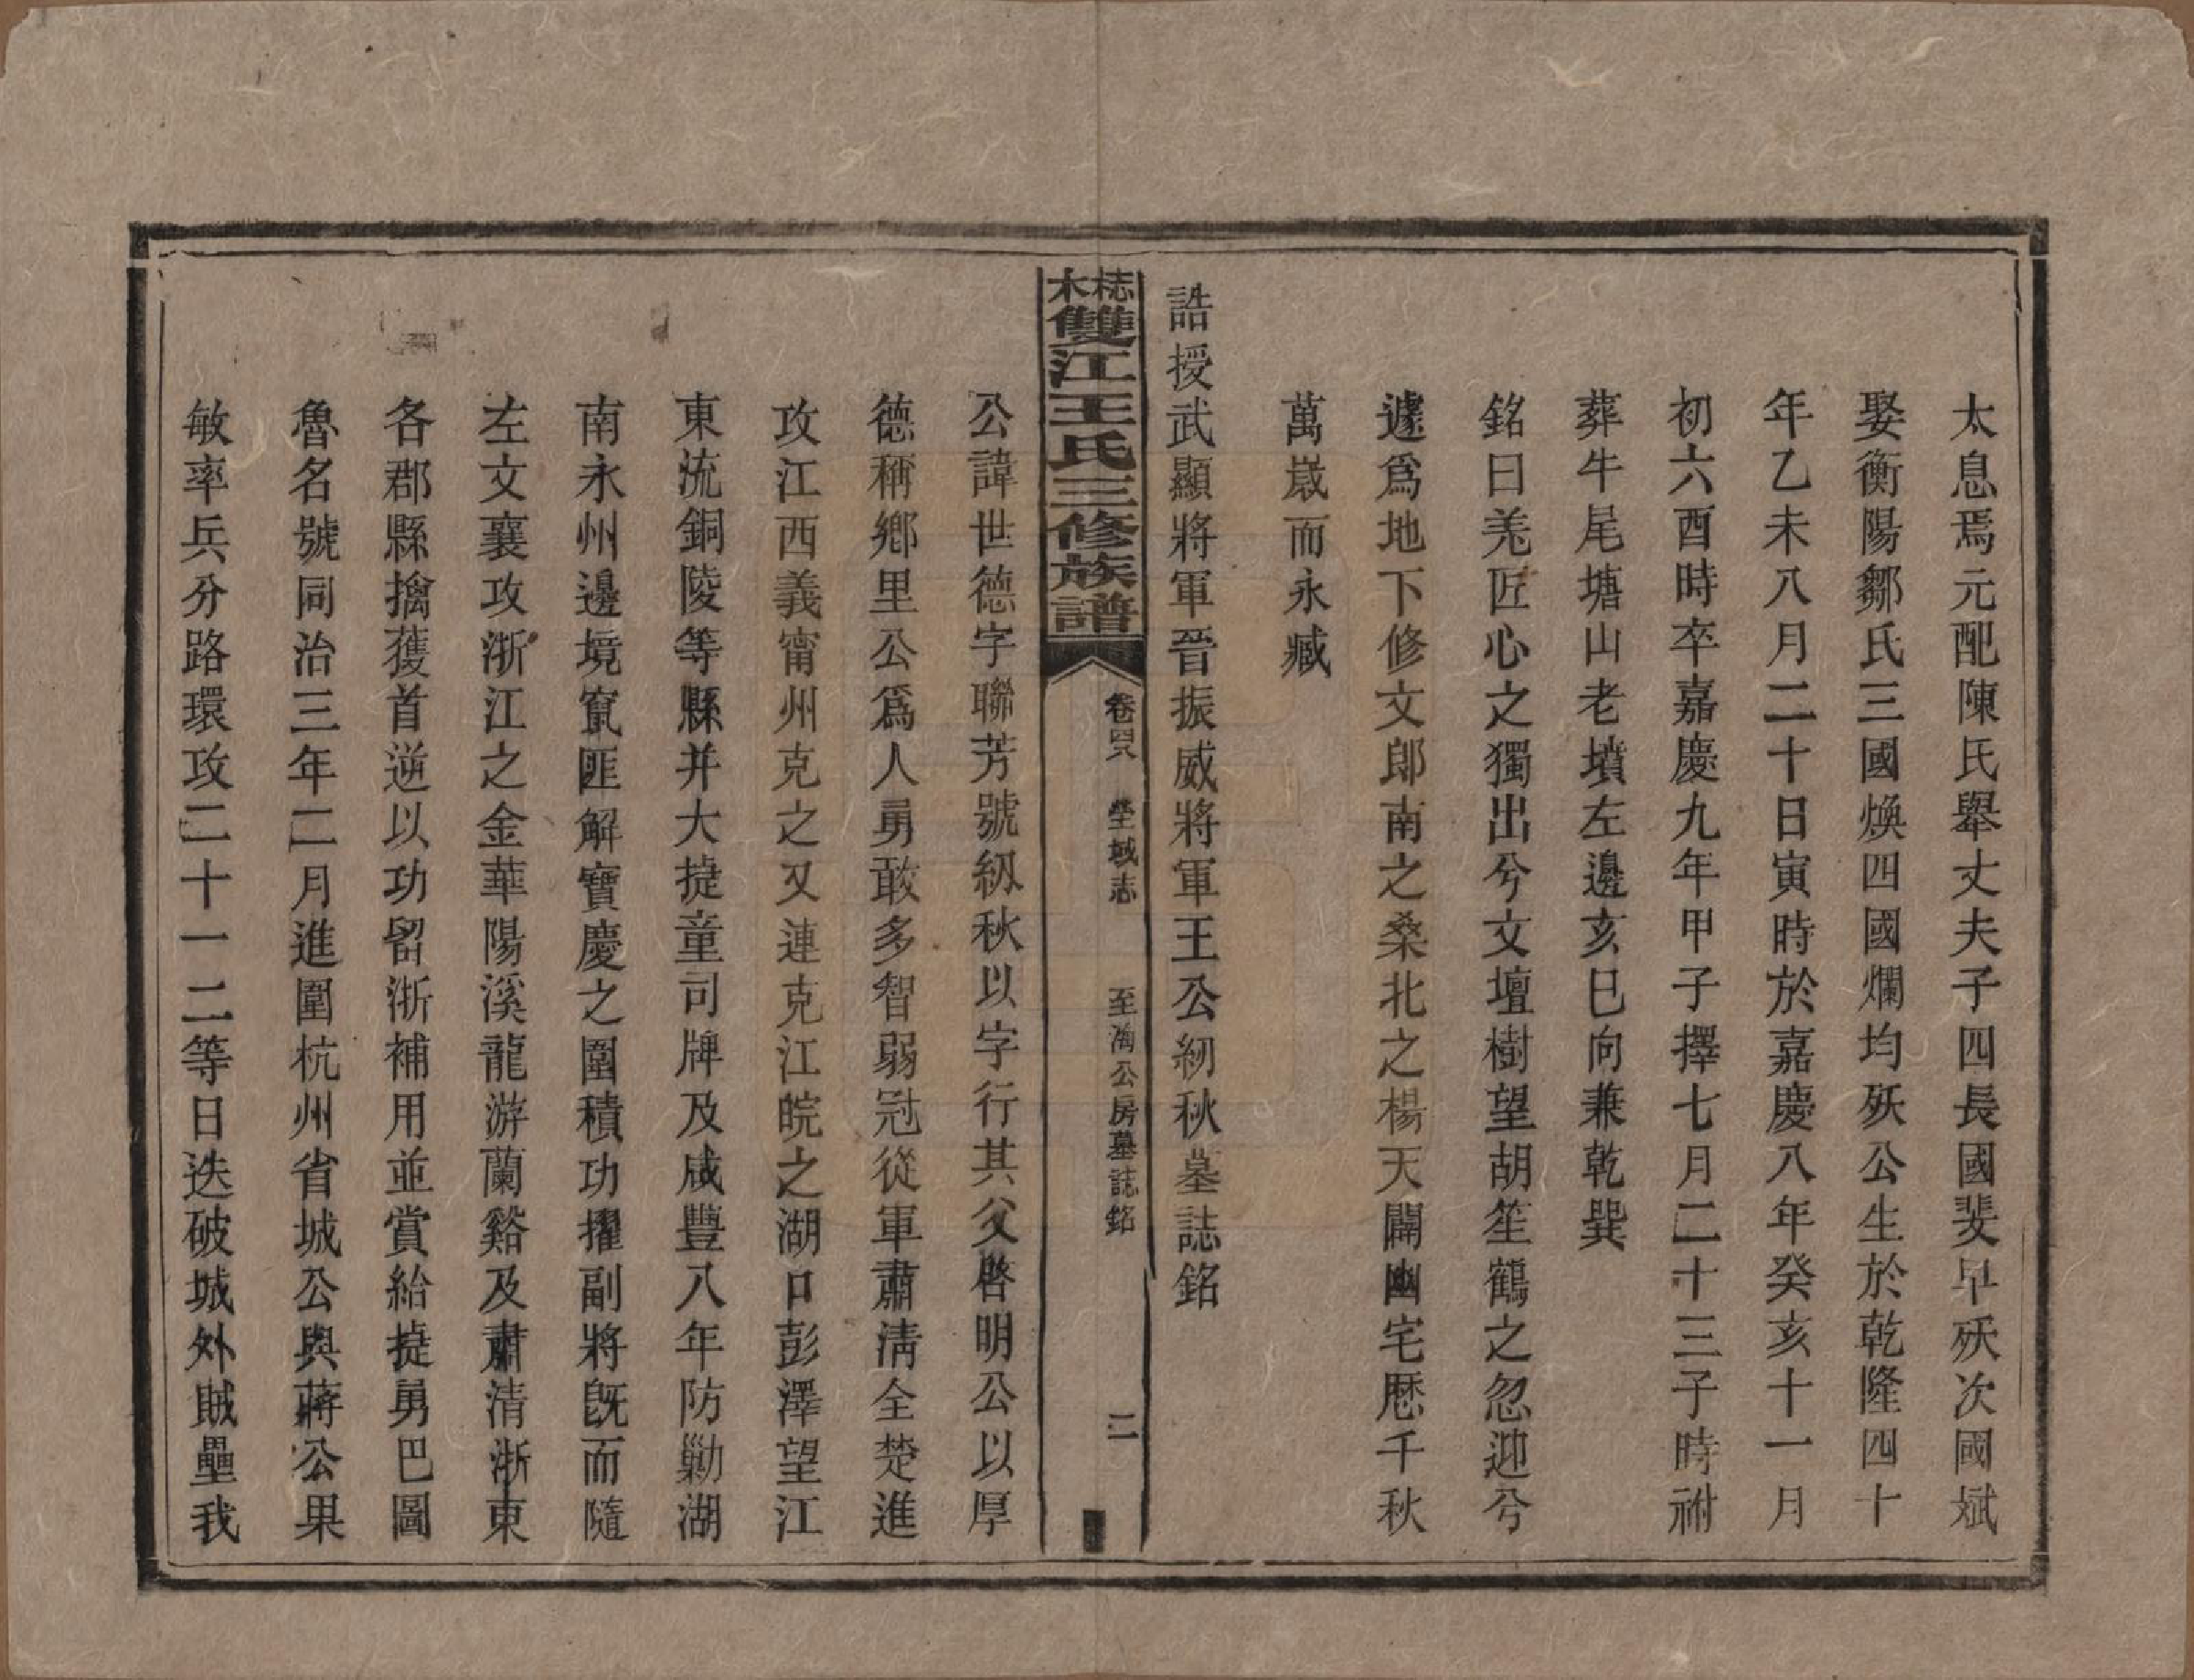 太息焉元配陳氏舉丈夫子四長國斐早殀次國斌
娶衡陽鄒氏三國煥四國爛均殀公生於乾隆四十
年乙未八月二十日寅時於嘉慶八年癸亥十一月
初六酉時卒嘉慶九年甲子擇七月二十三子時祔
葬牛尾塘山老墳左邊亥巳向兼乾巽
銘曰羌匠心之獨出兮文壇樹望胡笙鶴之忽迎兮
遽爲地下修文郎南之桑北之楊天闢幽宅歷千秋
萬嵗而永臧
誥授武顯將軍晉振威將軍王公紉秋墓誌銘
梽木雙江王氏三修族譜
卷四八 塋域志 至公房墓誌銘 二
公諱世德字聯芳號紉秋以字行其父啓明公以厚
德稱鄉里公爲人勇敢多智弱冠從軍肅淸全楚進
攻江西義甯州克之又連克江皖之湖口彭澤望江
東流銅陵等縣并大捷童司牌及咸豐八年防勦湖
南永州邊境竄匪解寶慶之圍積功擢副將旣而隨
左文襄攻浙江之金華陽溪龍游蘭谿及肅清浙東
各郡縣擒獲首逆以功留浙補用並賞給捷勇巴圖
魯名號同治三年二月進圍杭州省城公與蔣公果
敏率兵分路環攻二十一二等日迭破城外賊壘我